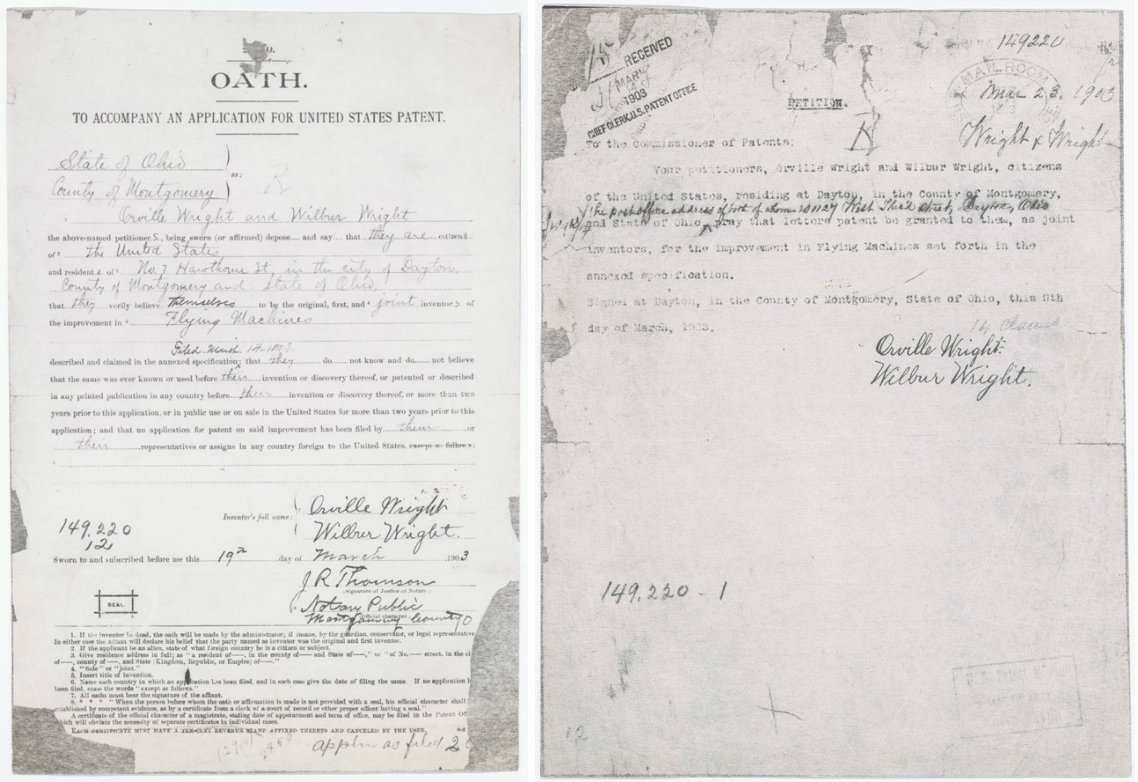 OATH.
TO ACCOMPANY AN APPLICATION FOR UNITED STATES PATENT.
State of Ohio
County of Montgomery
ss:
Orville Wright and Wilbur Wright
the above-named petitioner S, being sworn (or affirmed) depose and say that they are citizens
of The United States
and residents of No. 7 Hawthorne St, in the city of Dayton,
County of Montgomery and State of Ohio,
that they verily believe themselves to be the original, first, and joint inventors of
the improvement in Flying Machines
Filed
described and claimed in the annexed specification; that they do not know and do not believe
that the same was ever known or used before their invention or discovery thereof, or patented or described
in any printed publication in any country before their invention or discovery thereof, or more than two
years prior to this application, or in public use or on sale in the United States for more than two years prior to this
application; and that no application for patent on said improvement has been filed by them or
their representatives or assigns in any country foreign to the United States, except as follows:
Inventor's full name:
Orville Wright
Wilbur Wright.
149.220
12
Sworn to and subscribed before me this 19th day of March 1903
J R Thomson
Signature of Justice or Notary
SEAL
Notary Public
Montgomery County O
1. If the inventor be dead, the oath will be made by the administrator; if insane, by the guardian, conservator, or legal representative
In either case the affiant will declare his belief that the party named as inventor was the original and first inventor.
2. If the applicant be an alien, state of what foreign country he is a citizen or subject.
3. Give residence address in full; as "a resident of —, in the county of — and State of —," or "of No. — street, in the ci
of —, county of —, and State (Kingdom, Republic, or Empire) of —."
4. "Sole" or "joint."
5. Insert title of invention.
6. Name each country in which an application has been filed, and in each case give the date of filing the same. If no application
been filed, erase the words "except as follows."
7. All oaths must bear the signature of the affiant.
8. * * * "When the person before whom the oath or affirmation is made is not provided with a seal, his official character shall
established by competent evidence, as by a certificate from a clerk of a court of record or other proper officer having a seal."
A certificate of the official character of a magistrate, stating date of appointment and term of office, may be filed in the Patent Of
which will obviate the necessity of separate certificates in individual cases.
EACH CERTIFICATE MUST HAVE A TEN-CENT REVENUE STAMP AFFIXED THERETO AND CANCELED BY THE USER.
as filed 2
149220
RECEIVED
MAR
1903
CHIEF CLERK U.S. PATENT OFFICE
MAIL ROOM
Mar 23, 1903
PETITION.
Wright & Wright
To the Commissioner of Patents:
Your petitioners, Orville Wright and Wilbur Wright, citizens
of the United States, residing at Dayton, in the County of Montgomery,
the post office address of both of whom is 1127 West Third Street, Dayton, Ohio
and State of Ohio, pray that letters patent be granted to them, as joint
inventors, for the improvement in Flying Machines set forth in the
annexed specification.
Signed at Dayton, in the County of Montgomery, State of Ohio, this 9th
day of March, 1903.
14 Claims
Orville Wright.
Wilbur Wright.
149.220 - 1
12